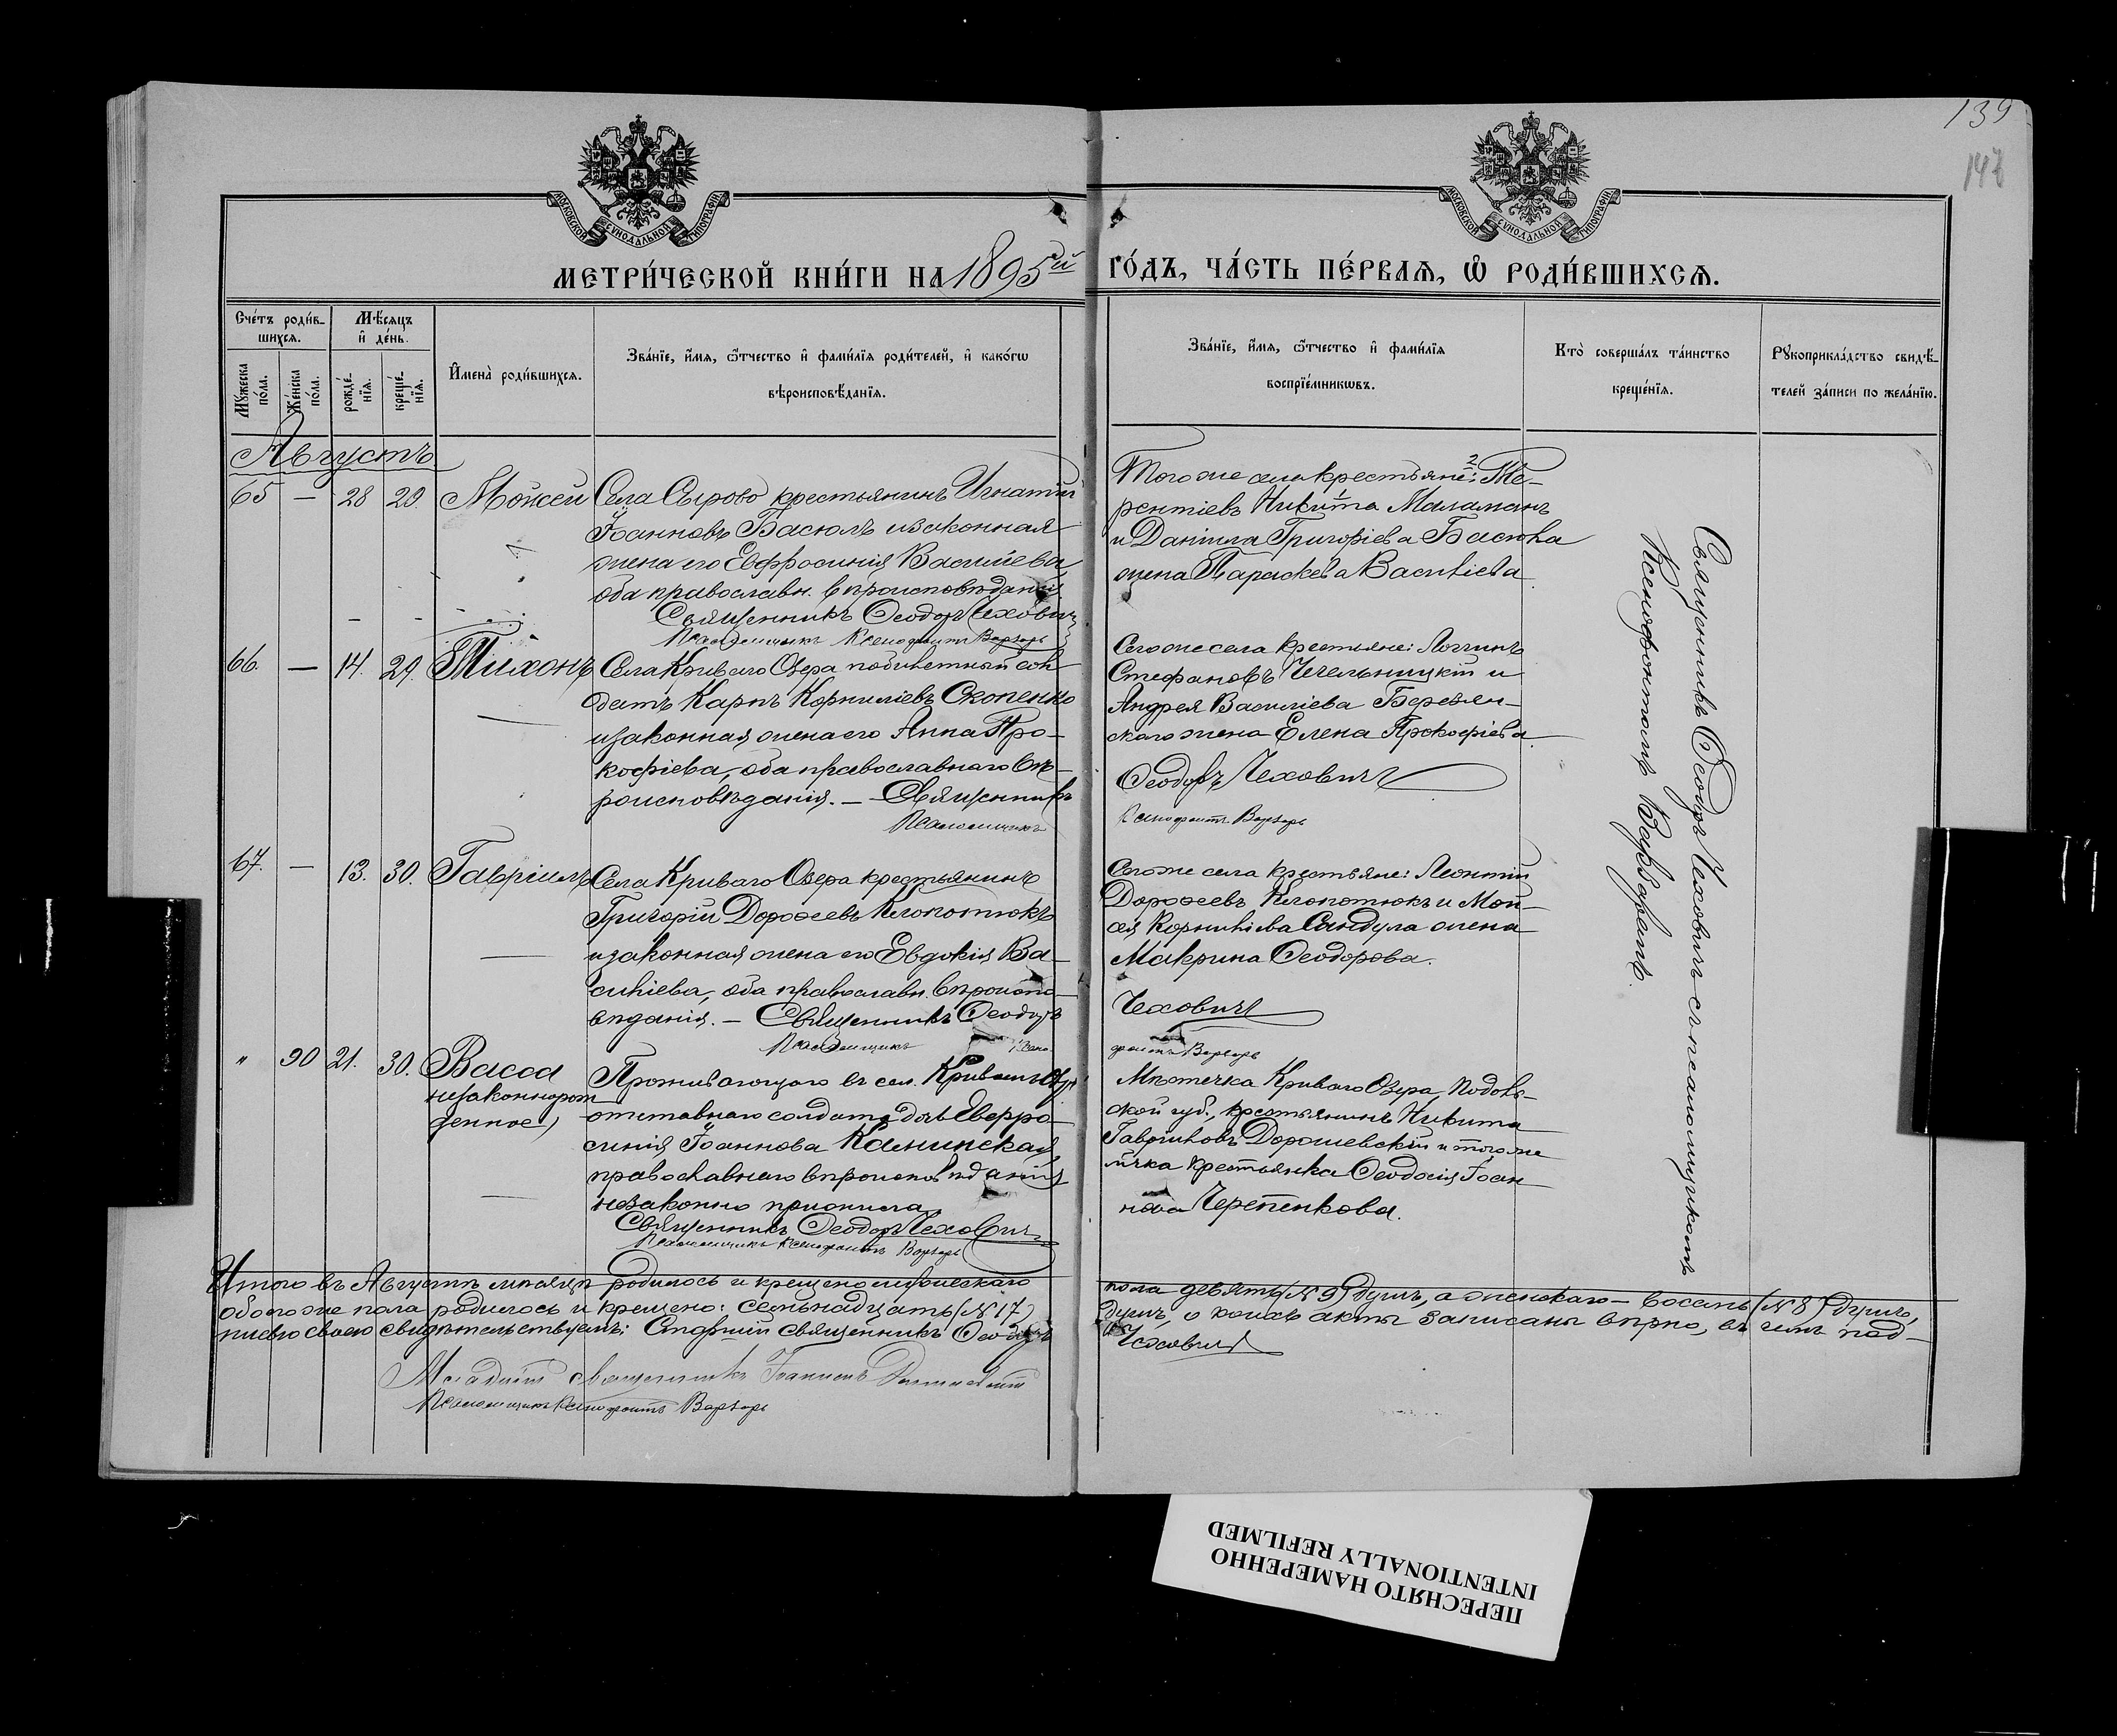 139
147
МОСКОВСКОЙ СѴНОДАЛЬНОЙ ТИПОГРАФІИ
МОСКОВСКОЙ СѴНОДАЛЬНОЙ ТИПОГРАФІИ
МЕТРИ́ЧЕСКОЙ КНИ́ГИ НА 1895й
ГО́ДЪ, ЧА́СТЬ ПЕ́РВАѦ, Ѡ҆ РОДИ́ВШИХСѦ.
Сче́тъ роди́в-
шихсѧ.
Мѣ́сѧцъ
и҆ де́нь.
Мꙋ́жеска по́ла.
Же́нска по́ла.
рожде́-нїѧ.
креще́-нїѧ.
И҆мена̀ роди́вшихсѧ.
Зва́нїе, и҆́мѧ, ѻ҆́тчество и҆ фами́лїѧ роди́телей, и҆ како́гѡ
вѣроисповѣ́данїѧ.
Зва́нїе, и҆́мѧ, ѻ҆́тчество и҆ фами́лїѧ
воспрїе́мникѡвъ.
Кто̀ соверша́лъ та́инство
креще́нїѧ.
Рꙋкоприкла́дство свидѣ́-
телей за́писи по жела́нїю.
Августъ
65 — 28 29. Мойсей
Села Сырово крестьянинъ Игнатій
Іоанновъ Басюлъ и законная
жена его Евфросинія Василіева
оба православн. вѣроисповѣданія
Священникъ Ѳеодоръ Чехович
Псаломщикъ Ксенофонтъ Варзарь
Того же села крестьяне: 2 Те-
рентіевъ Никита 1 Маламанъ
и Даніила Григоріева Басюка
жена Параскева Василіева
66. — 14. 29. Тихонъ
Села Криваго Озера побилетный сол
датъ Карпъ Корниліевъ Скопенко
и законная жена его Анна Про-
кофіева, оба православнаго вѣ-
роисповѣданія. — Священникъ
Псаломщикъ
Сего же села крестьяне: Логгинъ
Стефановъ Чечельницкій и
Андрея Василіева Березян-
скаго жена Елена Прокофіева
Ѳеодоръ Чехович
Ксенофонтъ Варзарь
67. — 13. 30. Гавріилъ
Села Криваго Озера крестьянинъ
Григорій Дороѳеевъ Клопотюкъ
и законная жена его Евдокія Ва-
силіева, оба православн. вѣроиспо-
вѣданія. — Священникъ Ѳеодоръ
Псаломщикъ Ксено
Сего же села крестьяне: Леонтій
Дороѳеевъ Клопотюкъ и Мой-
сея Корниліева Сандула жена
Макрина Ѳеодорова.
Чехович
фонтъ Варзарь
" 90 21. 30. Васса
незаконнорож
денное)
Проживающаго въ сел. Кривомъ Озерѣ
отставнаго солдата дочь Евфро-
синія Іоаннова Калинская,
православнаго вѣроисповѣданія
незаконно прижила.
Священникъ Ѳеодоръ Чехович
Псаломщикъ Ксенофонтъ Варзарь
Мѣстечка Криваго Озера, Подоль-
ской губ., крестьянинъ Никита
Гавріиловъ Дорошевскій и того же
м-чка крестьянка Ѳеодосія Іоан-
нова Черпенкова.
Священникъ Ѳеодоръ Чеховичъ съ псаломщикомъ
Ксенофонтомъ Варзаремъ.
Итого въ Августѣ мѣсяцѣ родилось и крещено мужескаго
пола девять (№ 9) душъ, а женскаго — восемь (№ 8) душъ,
обоего же пола родилось и крещено: семьнадцать (№ 17)
душъ, о коихъ акты записаны вѣрно, въ чемъ под-
писью своею свидѣтельствуемъ: Старшій священникъ Ѳеодоръ
Чехович
Младшій священникъ Іоаннъ
Псаломщикъ Ксенофонтъ Варзарь
ПЕРЕСНЯТО НАМЕРЕННО
INTENTIONALLY REFILMED